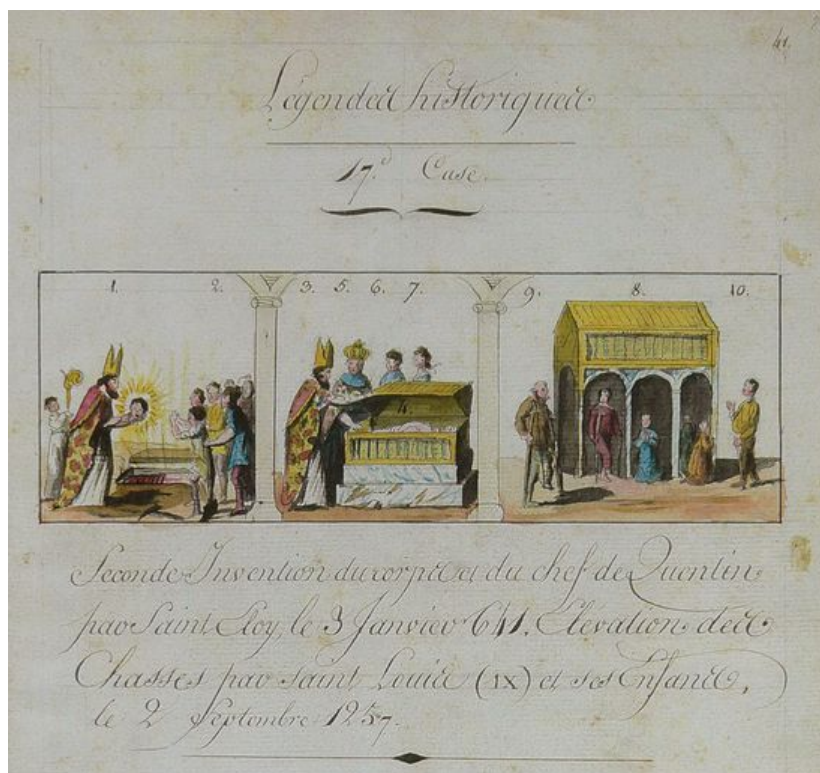 41.
Légendes historiques
17.e Case.
1. 2. 3. 5. 6. 7. 9. 8. 10.
4.
Seconde Invention du corps et du chef de Quentin
par Saint Eloy, le 3 Janvier 641. Elévation des
Chasses par saint Louis (IX) et ses Enfans,
le 2 Septembre 1257.